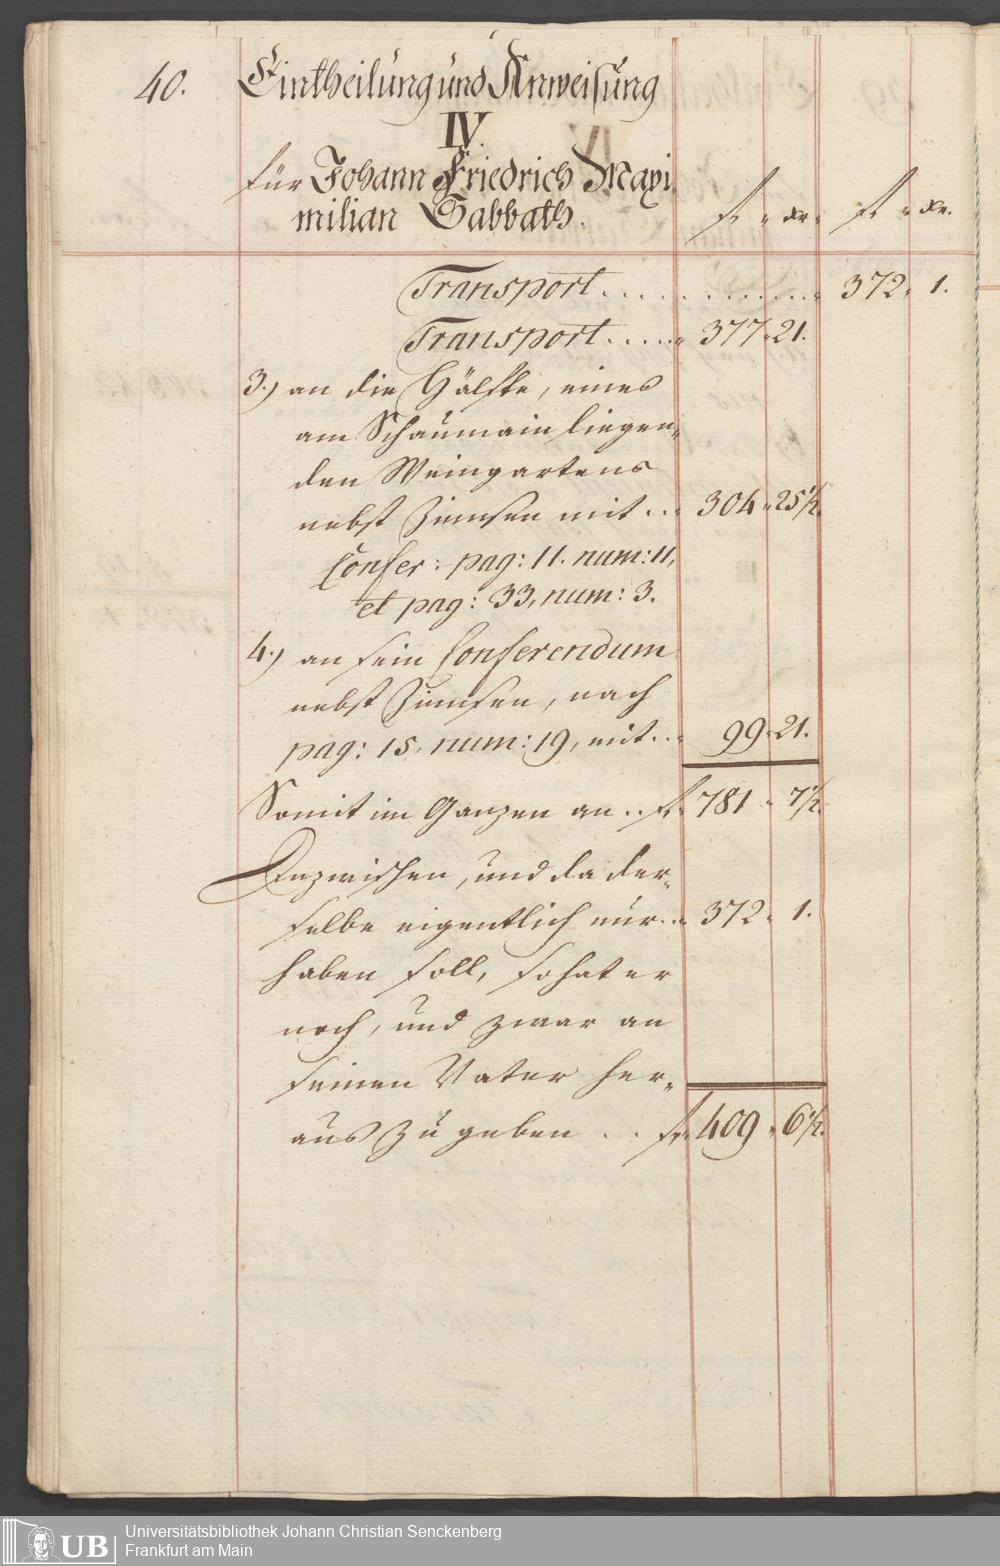 40. Eintheilung und Anweisung
IV.
für Johann Friedrich Maxi
milian Sabbath.
fl. " xr. fl. " xr.
Transport . . . . . . . . . . . . 372 " 1.
Transport . . . . . " 377 " 21.
3.) an die Hälfte, eines
am Schaumain liegen„
den Weingartens
nebst Zinnsen mit . . " 304 " 25½.
Confer: pag: 11. num: 11,
et pag: 33, num: 3.
4.) an sein Conferendum
nebst Zinnsen, nach
pag: 15, num: 19, mit . . " 99 " 21.
Somit im Ganzen an . . fl. 781 " 7½.
Inzwischen, und da der„
selbe eigentlich nur . . " 372 " 1.
haben soll, so hat er
noch, und zwar an
seinen Vater her„
aus zu geben . . fl. 409 " 6½.
UB
Universitätsbibliothek Johann Christian Senckenberg
Frankfurt am Main